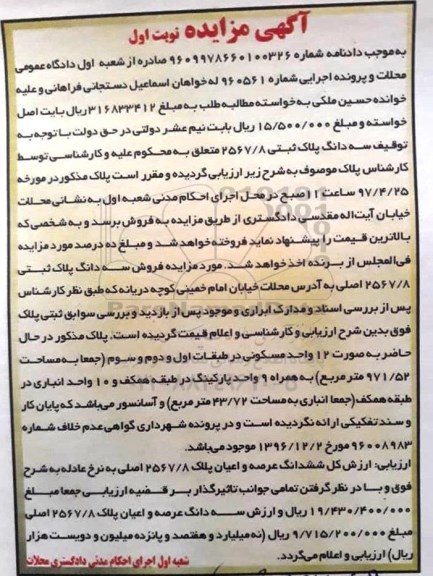 آگهی مزایده نوبت اول
به موجب دادنامه شماره ۹۶۰۹۹۷۸۶۶۰۱۰۰۳۲۶ صادره از شعبه اول دادگاه عمومی
محلات و پرونده اجرایی شماره ۹۶۰۵۶۱ له خواهان اسماعیل دستجانی فراهانی و علیه
خوانده حسین ملکی به خواسته مطالبه طلب به مبلغ ۳۱۶۸۳۳۴۱۲ ریال بابت اصل
خواسته و مبلغ ۱۵/۵۰۰/۰۰۰ ریال بابت نیم عشر دولتی در حق دولت با توجه به
توقیف سه دانگ پلاک ثبتی ۲۵۶۷/۸ متعلق به محکوم علیه و کارشناسی توسط
کارشناس پلاک موصوف به شرح زیر ارزیابی گردیده و مقرر است پلاک مذکور در مورخه
۹۷/۴/۲۵ ساعت ۱۱ صبح در محل اجرای احکام مدنی شعبه اول به نشانی محلات
خیابان آیت اله مقدسی دادگستری از طریق مزایده به فروش برسد و به شخصی که
بالاترین قیمت را پیشنهاد نماید فروخته خواهد شد و مبلغ ده درصد مورد مزایده
فی المجلس از برنده اخذ خواهد شد. مورد مزایده فروش سه دانگ پلاک ثبتی
۲۵۶۷/۸ اصلی به آدرس محلات خیابان امام خمینی کوچه دریانه که طبق نظر کارشناس
پس از بررسی اسناد و مدارک ابرازی و موجود پس از بازدید و بررسی سوابق ثبتی پلاک
فوق بدین شرح ارزیابی و کارشناسی و اعلام قیمت گردیده است. پلاک مذکور در حال
حاضر به صورت ۱۲ واحد مسکونی در طبقات اول و دوم و سوم (جمعا به مساحت
۹۷۱/۵۲ متر مربع) به همراه ۹ واحد پارکینگ در طبقه همکف و ۱۰ واحد انباری در
طبقه همکف (جمعا انباری به مساحت ۴۳/۷۲ متر مربع) و آسانسور می باشد که پایان کار
و سند تفکیکی ارائه نگردیده است و در پرونده شهرداری گواهی عدم خلاف شماره
۹۶۰۰۸۹۸۳ مورخ ۱۳۹۶/۱۲/۲ موجود می باشد.
ارزیابی: ارزش کل ششدانگ عرصه و اعیان پلاک ۲۵۶۷/۸ اصلی به نرخ عادله به شرح
فوق و با در نظر گرفتن تمامی جوانب تاثیرگذار بر قضیه ارزیابی جمعا مبلغ
۱۹/۴۳۰/۴۰۰/۰۰۰ ریال و ارزش سه دانگ عرصه و اعیان پلاک ۲۵۶۷/۸ اصلی
مبلغ ۹/۷۱۵/۲۰۰/۰۰۰ ریال (نه میلیارد و هفتصد و پانزده میلیون و دویست هزار
ریال) ارزیابی و اعلام می گردد.
شعبه اول اجرای احکام مدنی دادگستری محلات